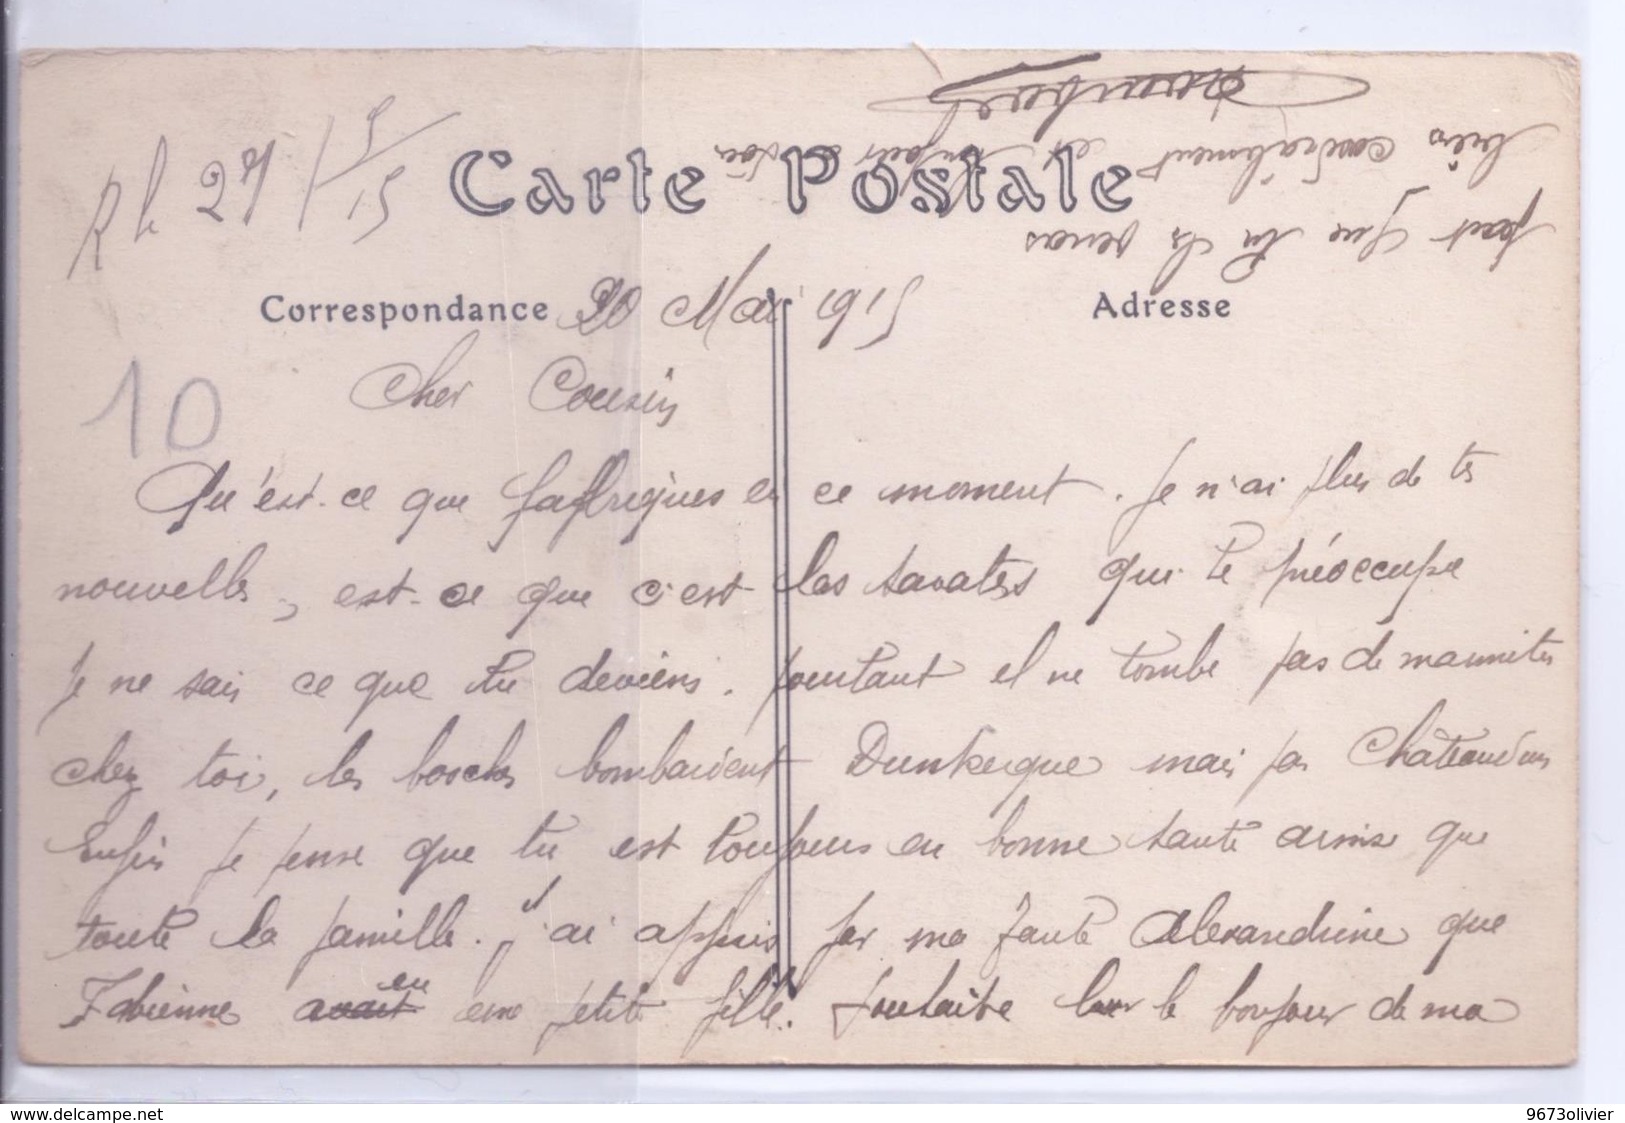 R le 27/5/15
Carte Postale
Correspondance
20 Mai 1915
Adresse
10
Cher Cousin
Qu'est-ce que fabriques en ce moment. Je n'ai plus de tes
nouvelles, est-ce que c'est les savates qui te préoccupe
Je ne sais ce que tu deviens. pourtant il ne tombe pas de marmites
chez toi, les bosches bombardent Dunkerque mais pas Châteaudun
Enfin je pense que tu est toujours en bonne santé ainsi que
toute la famille. j'ai appris par ma Tante Alexandrine que
Fabienne avait eu une petite fille. Souhaite leur le bonjour de ma
part que tu les verras
bien cordialement et bonjour à toi
-www.delcampe.net
9673olivier